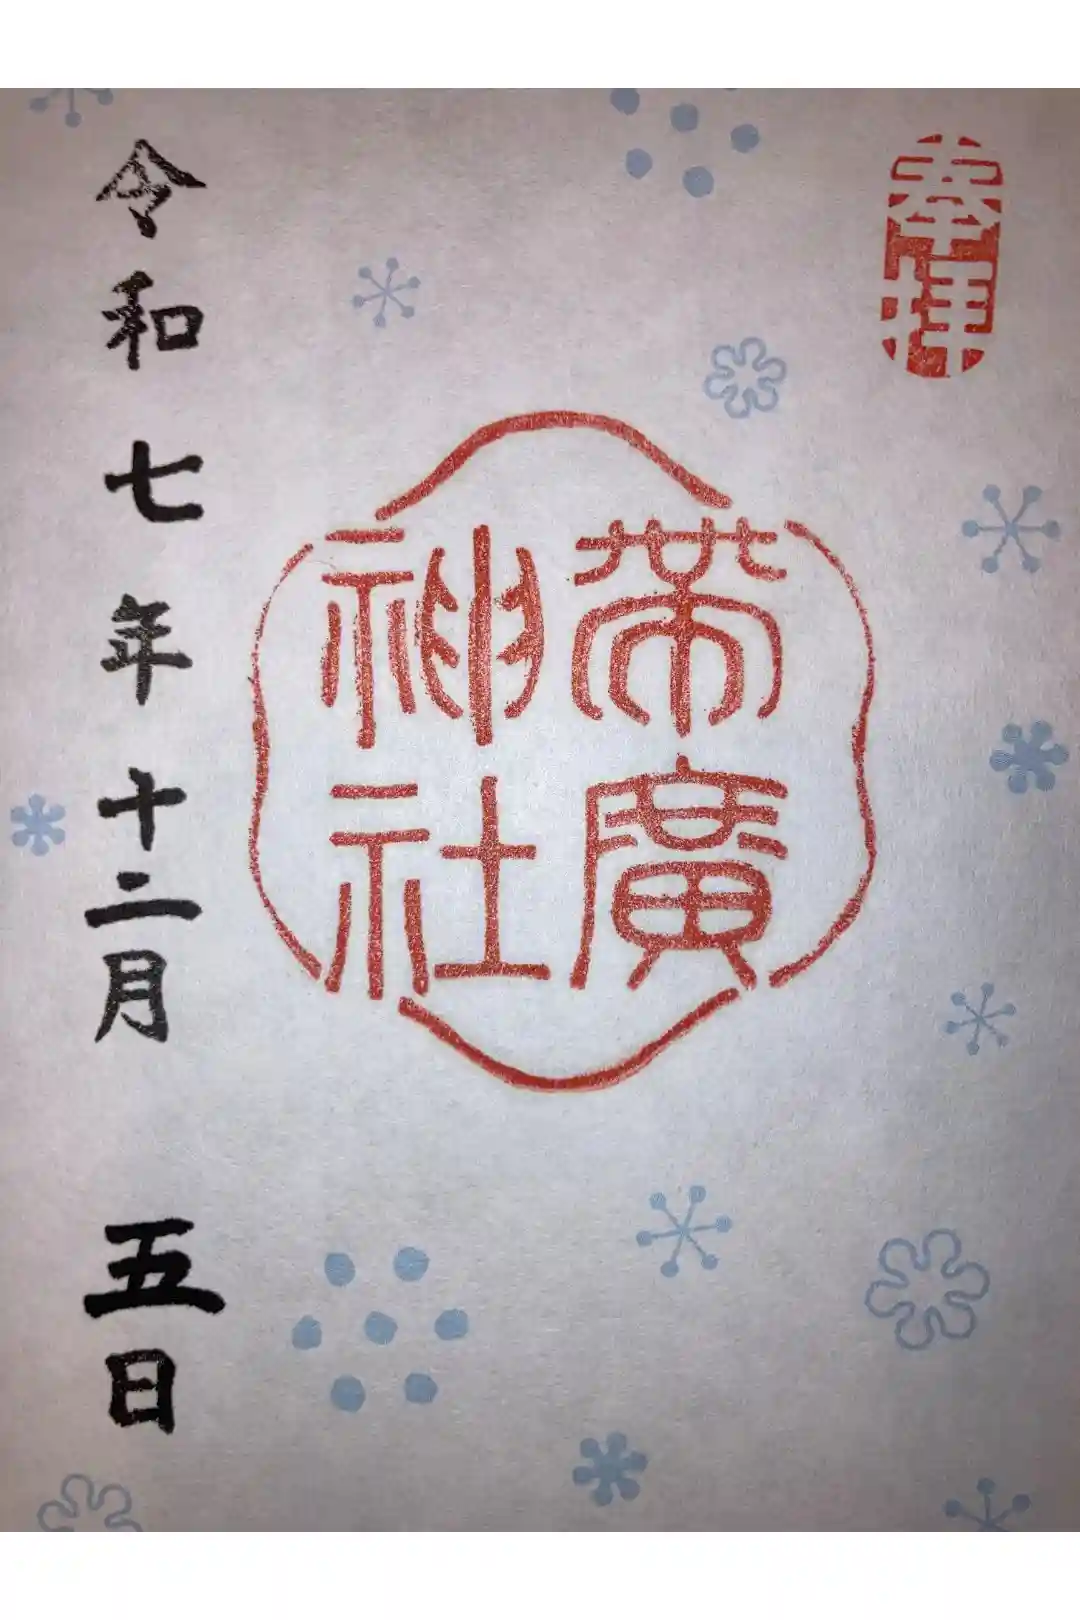 奉拝
帯廣
神社
令和七年十二月五日